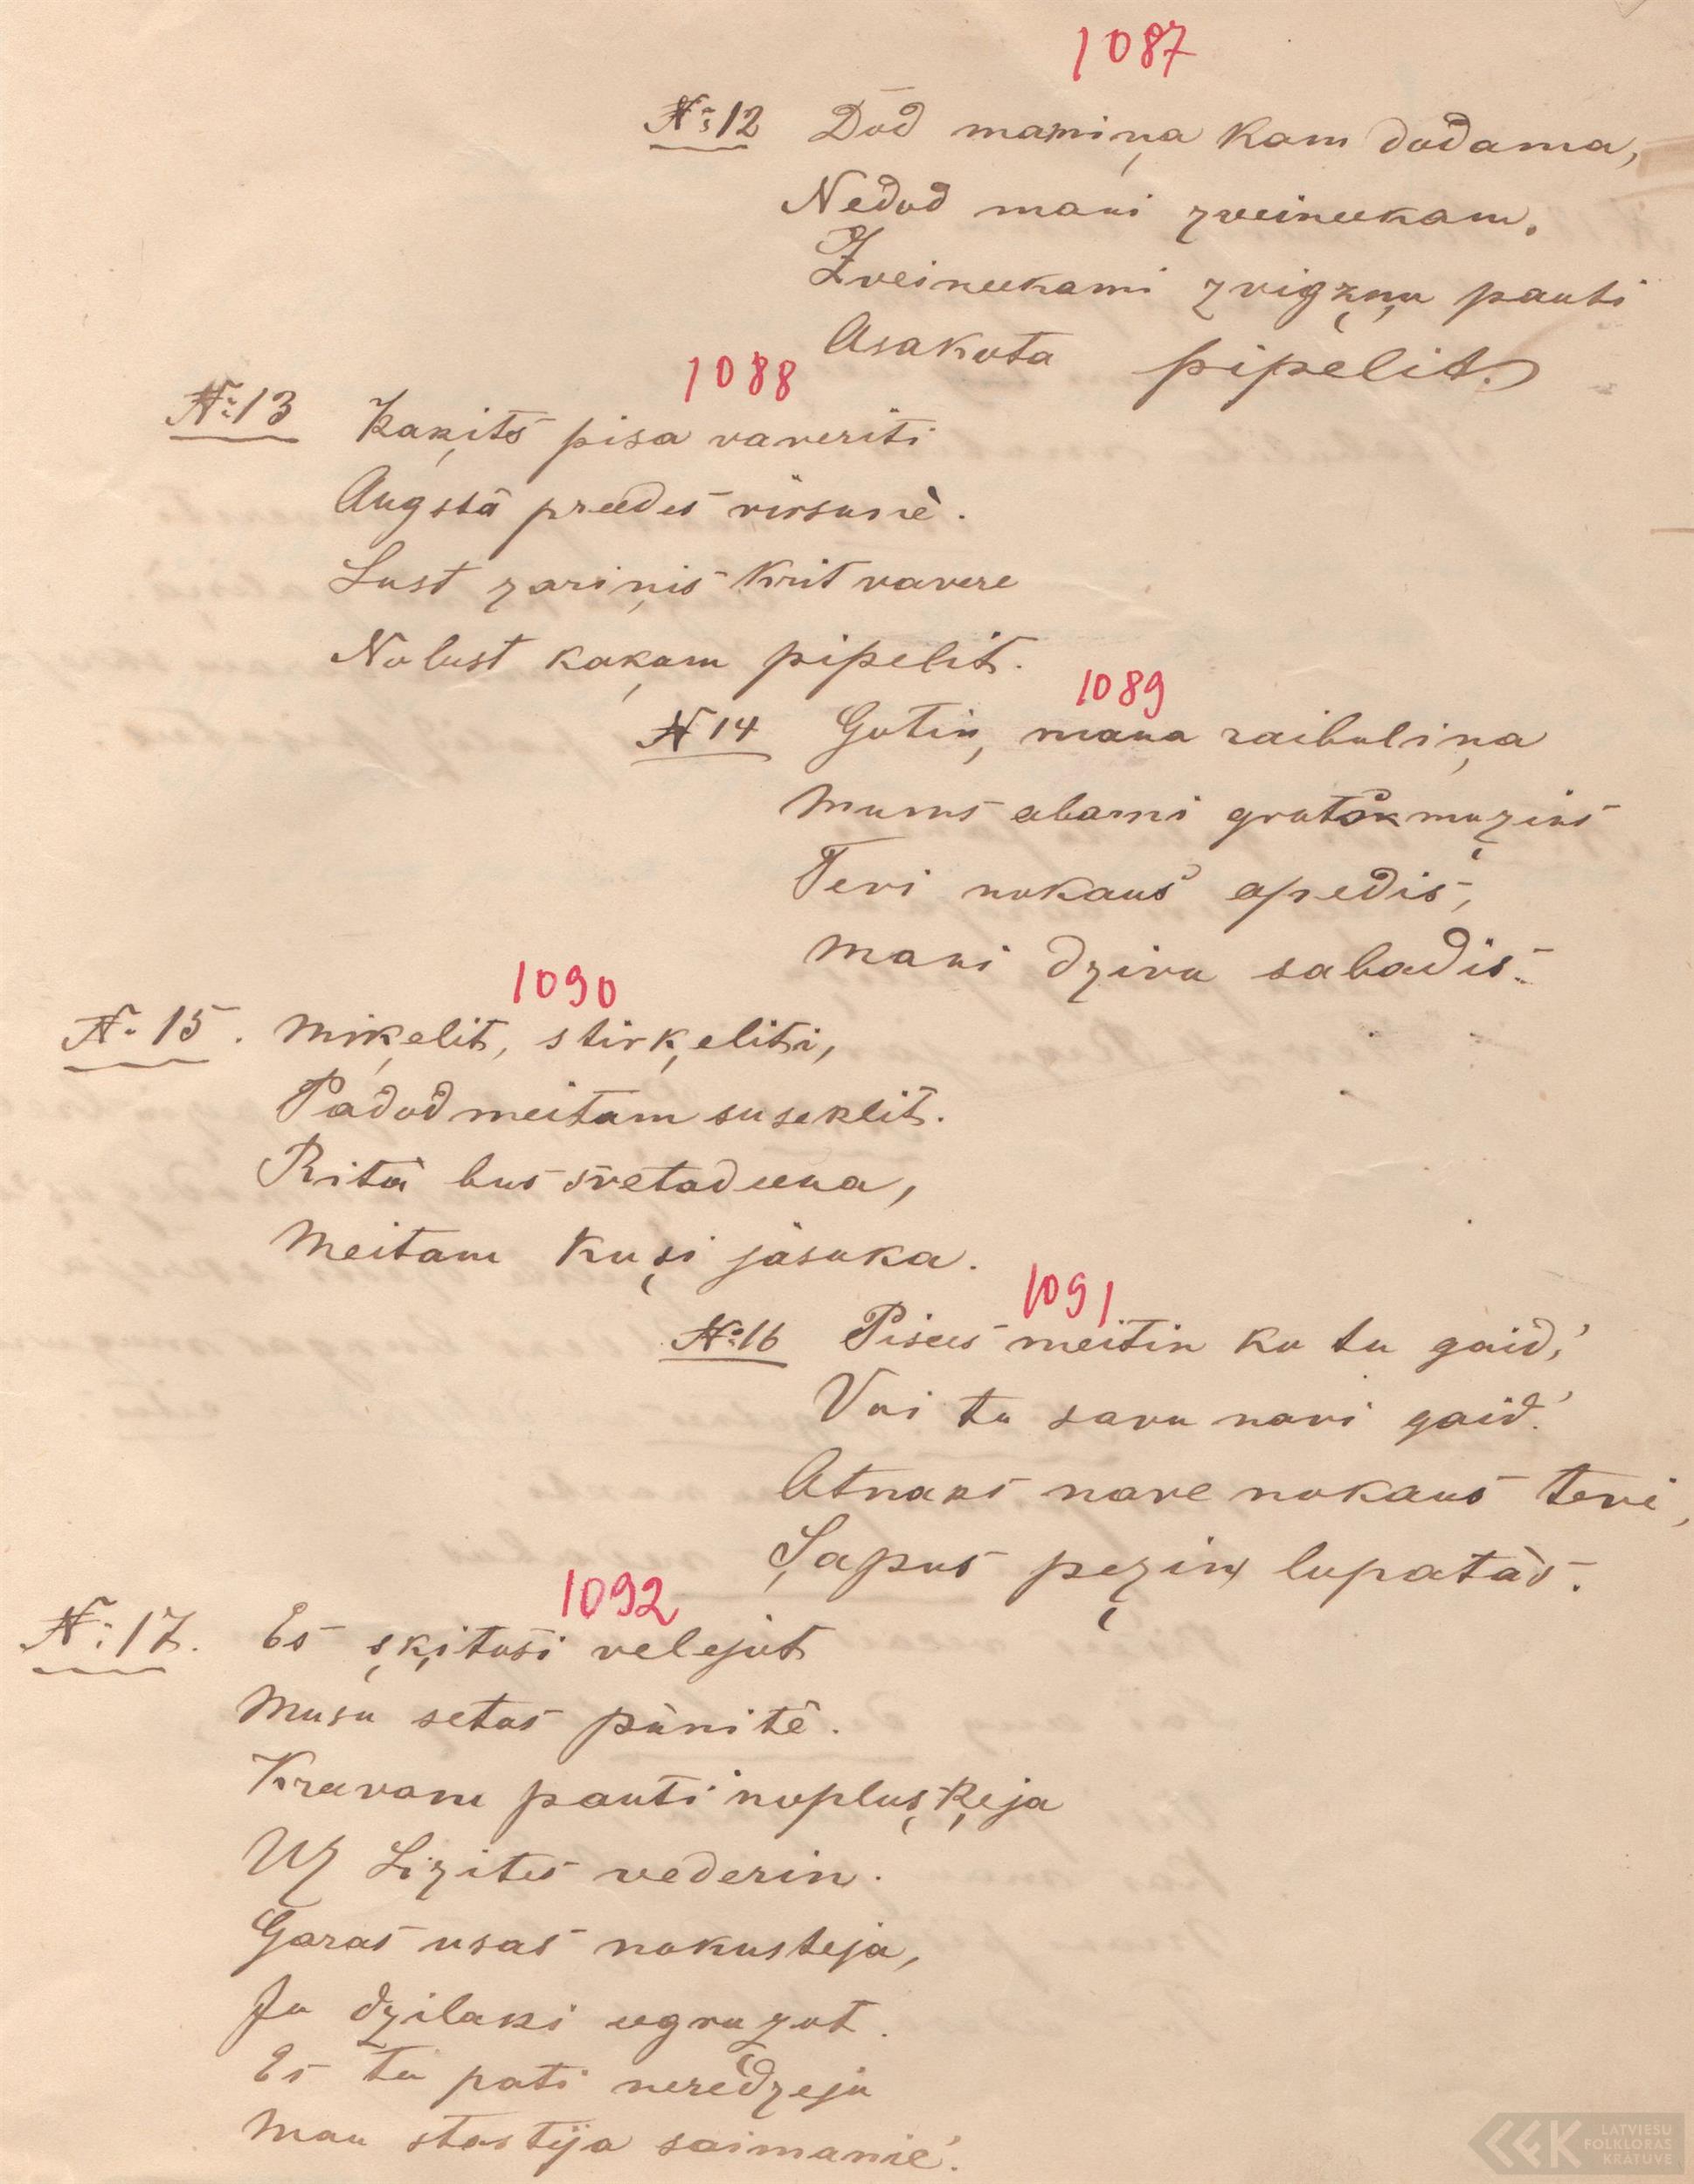 1087
№ 12 Dod mamiņa kam dodama,
Nedod mani zveineekam.
Zveineekami zvigžņu pauti
Asakota pipelit.
1088
№ 13 Kaķits pisa vaveriti
Augstā preedes virsunè.
Lust zariņis krit vavere
Nolust kaķam pipelit.
1089
N 14 Gotiņ, mana raibuliņa
Mums abami grutsk mužins
Tevi nokaus apedis,
Mani dzivu sabadis.
1090
№ 15. Miķelit, stirķeliti,
Padod meitam suseklit.
Ritā bus svetadeena,
Meitam kuši jāsuka.
1091
№ 16 Pisees meitin ko tu gaid',
Vai tu savu navi gaid'.
Atnaks nave nokaus tevi,
Ļapus pežiņ lupatās.
1092
№ 17. Es šķitosi velejot
Musu setas pūnitē.
Kreevam pauti noplušķeja
Uz Lizites vederin.
Garas usas nokusteja,
Jo dzilaki eegružot.
Es to pati neredzeju
Man stastija saimenie'.
LATVIEŠU
FOLKLORAS
KRĀTUVE